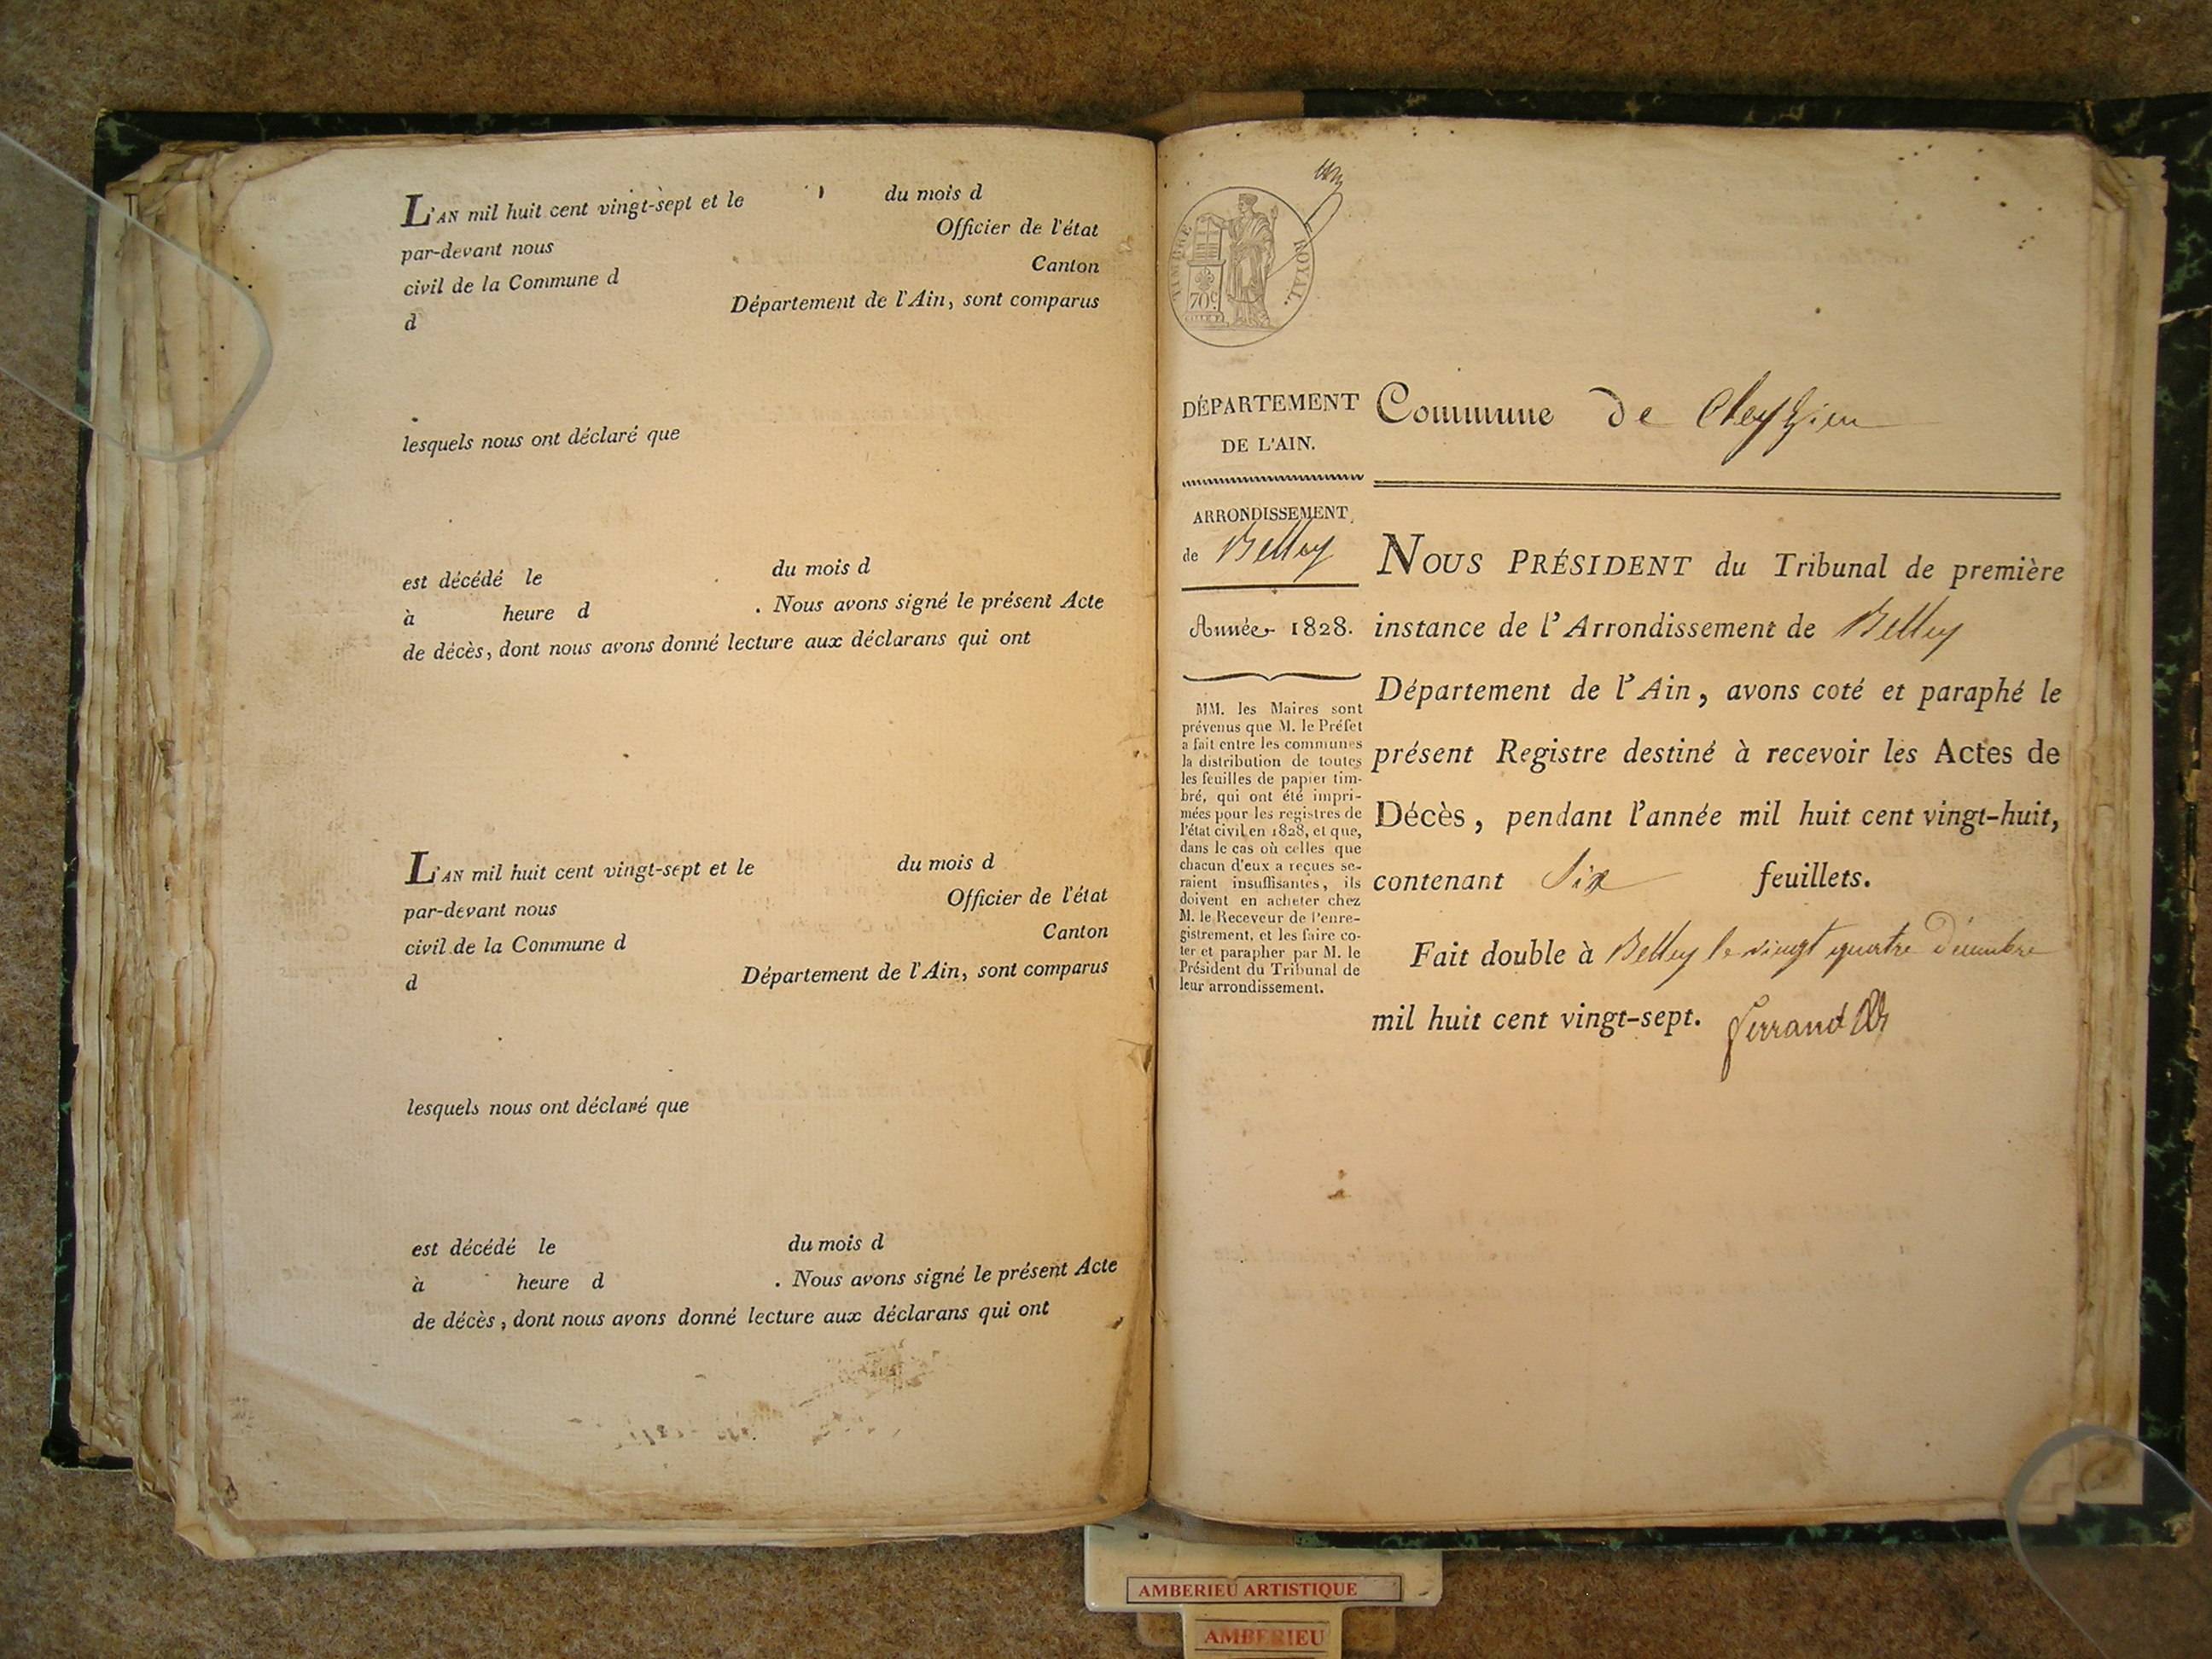 L'AN mil huit cent vingt-sept et le du mois d
par-devant nous Officier de l'état
civil de la Commune d Canton
d Département de l'Ain, sont comparus
lesquels nous ont déclaré que
est décédé le du mois d
à heure d . Nous avons signé le présent Acte
de décès, dont nous avons donné lecture aux déclarans qui ont
L'AN mil huit cent vingt-sept et le du mois d
par-devant nous Officier de l'état
civil de la Commune d Canton
d Département de l'Ain, sont comparus
lesquels nous ont déclaré que
est décédé le du mois d
à heure d . Nous avons signé le présent Acte
de décès, dont nous avons donné lecture aux déclarans qui ont
TIMBRE ROYAL.
70c
DÉPARTEMENT
DE L'AIN.
ARRONDISSEMENT
de Belley
Année 1828.
MM. les Maires sont
prévenus que M. le Préfet
a fait entre les communes
la distribution de toutes
les feuilles de papier tim-
bré, qui ont été impri-
mées pour les registres de
l'état civil en 1828, et que,
dans le cas où celles que
chacun d'eux a reçues se-
raient insuffisantes, ils
doivent en acheter chez
M. le Receveur de l'enre-
gistrement, et les faire co-
ter et parapher par M. le
Président du Tribunal de
leur arrondissement.
Commune de Cleyzieu
NOUS PRÉSIDENT du Tribunal de première
instance de l'Arrondissement de Belley
Département de l'Ain, avons coté et paraphé le
présent Registre destiné à recevoir les Actes de
Décès, pendant l'année mil huit cent vingt-huit,
contenant Six feuillets.
Fait double à Belley le vingt quatre Décembre
mil huit cent vingt-sept. Ferrand
AMBERIEU ARTISTIQUE
AMBERIEU